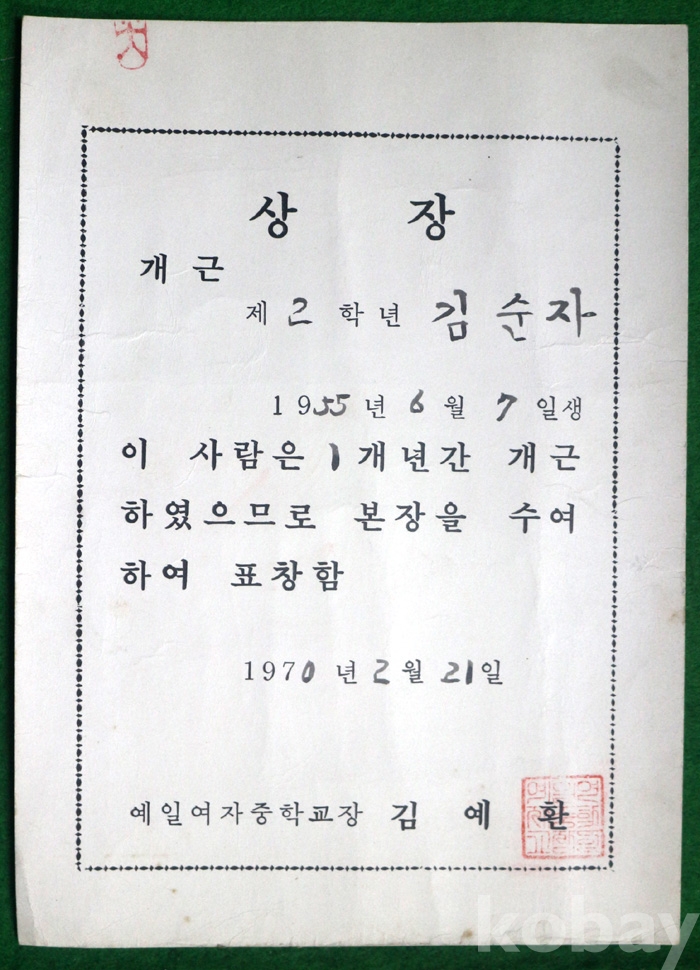 상 장
개근
제 2 학년 김순자
1955년 6월 7일생
이 사람은 1개년간 개근
하였으므로 본장을 수여
하여 표창함
1970년 2월 21일
예일여자중학교장 김예환
kobay